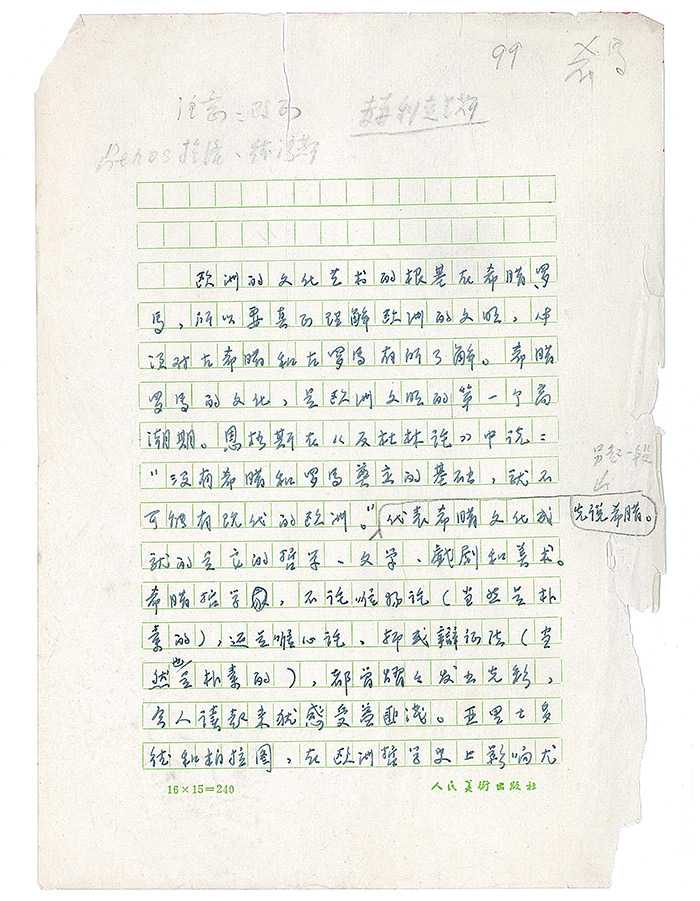 99 希
欧洲的文化艺术的根基在希腊罗
马，所以要真正理解欧洲的文明，必
须对古希腊和古罗马有所了解。希腊
罗马的文化，是欧洲文明的第一个高
潮期。恩格斯在《反杜林论》中说：
“没有希腊和罗马奠立的基础，就不
可能有现代的欧洲。”代表希腊文化成
另起一段
先说希腊。
就的是它的哲学、文学、戏剧和美术。
希腊哲学，不论唯物论（当然是朴
素的），还是唯心论，抑或辩证法（当
然也是朴素的），都曾耀々发出光彩，
令人读起来犹感受益匪浅。亚里士多
德和柏拉图，在欧洲哲学史上影响尤
16×15=240
人民美術出版社